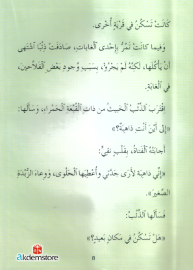 كَانَتْ تَسْكُنُ فِي قَرْيَةٍ أُخْرَى.
وَفِيمَا كَانَتْ تَمُرُّ بِإِحْدَى الْغَابَاتِ، صَادَفَتْ ذِئْبًا اشْتَهَى
أَنْ يَأْكُلَهَا، لَكِنَّهُ لَمْ يَجْرُؤْ، بِسَبَبِ وُجُودِ بَعْضِ الْفَلَّاحِينَ،
فِي الْغَابَةِ.
اقْتَرَبَ الذِّئْبُ الْخَبِيثُ مِنْ ذَاتِ الْقُبَّعَةِ الْحَمْرَاءِ، وَسَأَلَهَا:
«إِلَى أَيْنَ أَنْتِ ذَاهِبَةٌ؟»
أَجَابَتْهُ الْفَتَاةُ، بِقَلْبٍ نَقِيٍّ:
«إِنِّي ذَاهِبَةٌ لِأَرَى جَدَّتِي وَأُعْطِيَهَا الْحَلْوَى، وَوِعَاءَ الزُّبْدَةِ
الصَّغِيرَ».
فَسَأَلَهَا الذِّئْبُ:
«هَلْ تَسْكُنُ فِي مَكَانٍ بَعِيدٍ؟»
akdemstore